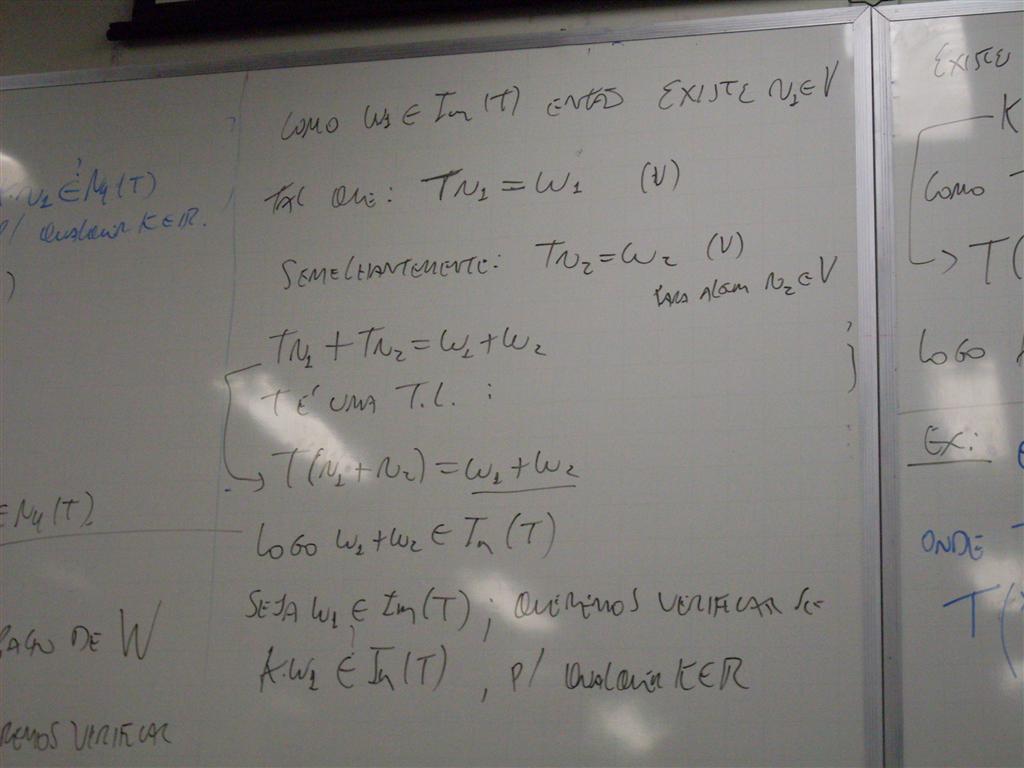 ∈ Nu(T)
P/ QUALQUER K∈R.
)
∈ Nu(T)
DE W
VERIFICAR
COMO w1 ∈ Im(T) ENTÃO EXISTE v1 ∈ V
TAL QUE: Tv1 = w1 (V)
SEMELHANTEMENTE: Tv2 = w2 (V)
PARA ALGUM v2 ∈ V
Tv1 + Tv2 = w1 + w2
T É UMA T.L. :
T(v1 + v2) = w1 + w2
LOGO w1 + w2 ∈ Im(T)
SEJA w1 ∈ Im(T) ; QUEREMOS VERIFICAR SE
K.w1 ∈ Im(T) , P/ QUALQUER K∈R
EXISTE
K
COMO T
T(
LOGO
EX:
ONDE T
T(